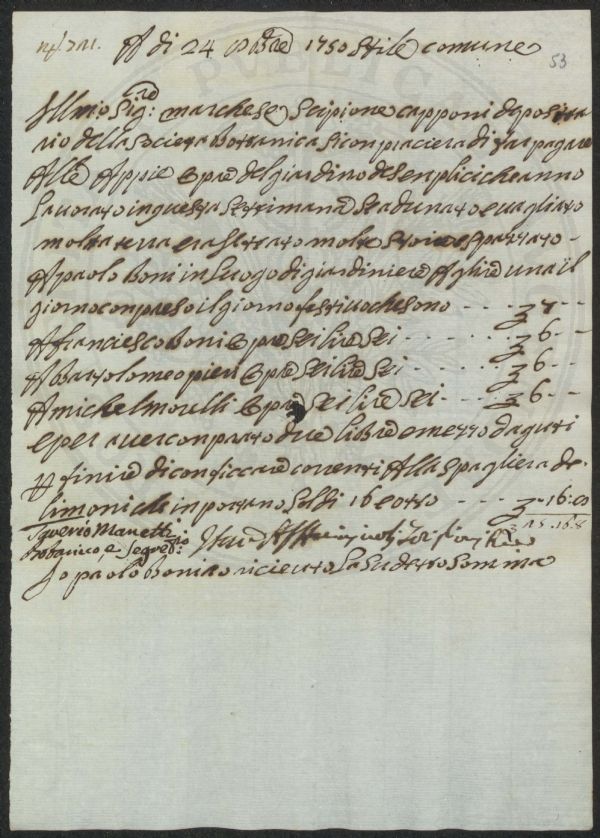 A di 24 8bre 1750 stile comune
53
Illmo Sigre: marchese Scipione capponi deposita
rio della Società bottanica si conpiacierà di far pagare
Alle Appie Opre del giardino de senplici che anno
lavorato in questa settimana seadunato e vagliato
molta terra e rastrato molte e spazzato -
A paolo boni in luogo di giardiniere A lire una il
giorno conpreso il giorno festivo che sono - - - - £ 7 - -
A franciesco boni Opre sei lire sei - - - - - £ 6 - -
A bartolomeo pieri Opre sei lire sei - - - - £ 6 - -
A michel morelli Opre sei lire sei - - - - £ 6 - -
e per aver conprato due libre e mezzo d aguti
p finire di conficcare correnti Alla spagliera de
limoni che inportano soldi 16 e otto - - - £ - 16: 8
£ 25.16.8
Saverio Manetti
Botanico, e Segrerio:
Io paolo boni o riceuto la sudetto somma